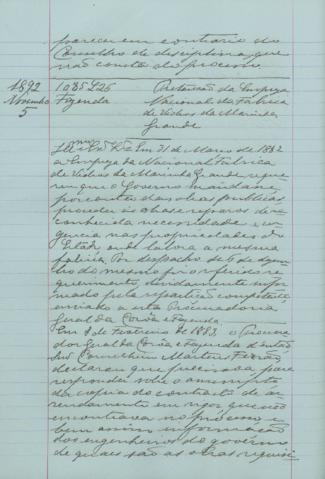 parecer em contrario do
Conselho de disciplina que
não consta do processo
1892
Novembro
5
1085 L26
Fazenda
Pretensão da Empresa
Nacional da Fabrica
de Vidros da Marinha
Grande
Em 31 de Março de 1882
a Empreza da Nacional Fabrica
de Vidros da Marinha Grande reque
reu que o Governo mandasse
por conta das obras publicas
proceder ás obras reparos de re
conhecida necessidade e ur
gencia nas propriedades do
Estado onde labora a mesma
fabrica. Por despacho de 6 de
do mesmo foi o referido re
querimento, devidamente infor
mado pela repartição competente
enviado a esta Procuradoria
Geral da Corôa e Fazenda
Em 8 de Fevereiro de 1883, o Procura
dor Geral da Corôa e Fazenda d'então
Conselheiro Martens Ferrão
declarou que precisava para
responder sobre o assumpto
da copia do contracto de ar
rendamento em vigor que não
encontrava no processo e
bem assim informação
dos engenheiros do governo
de quaes são as obras